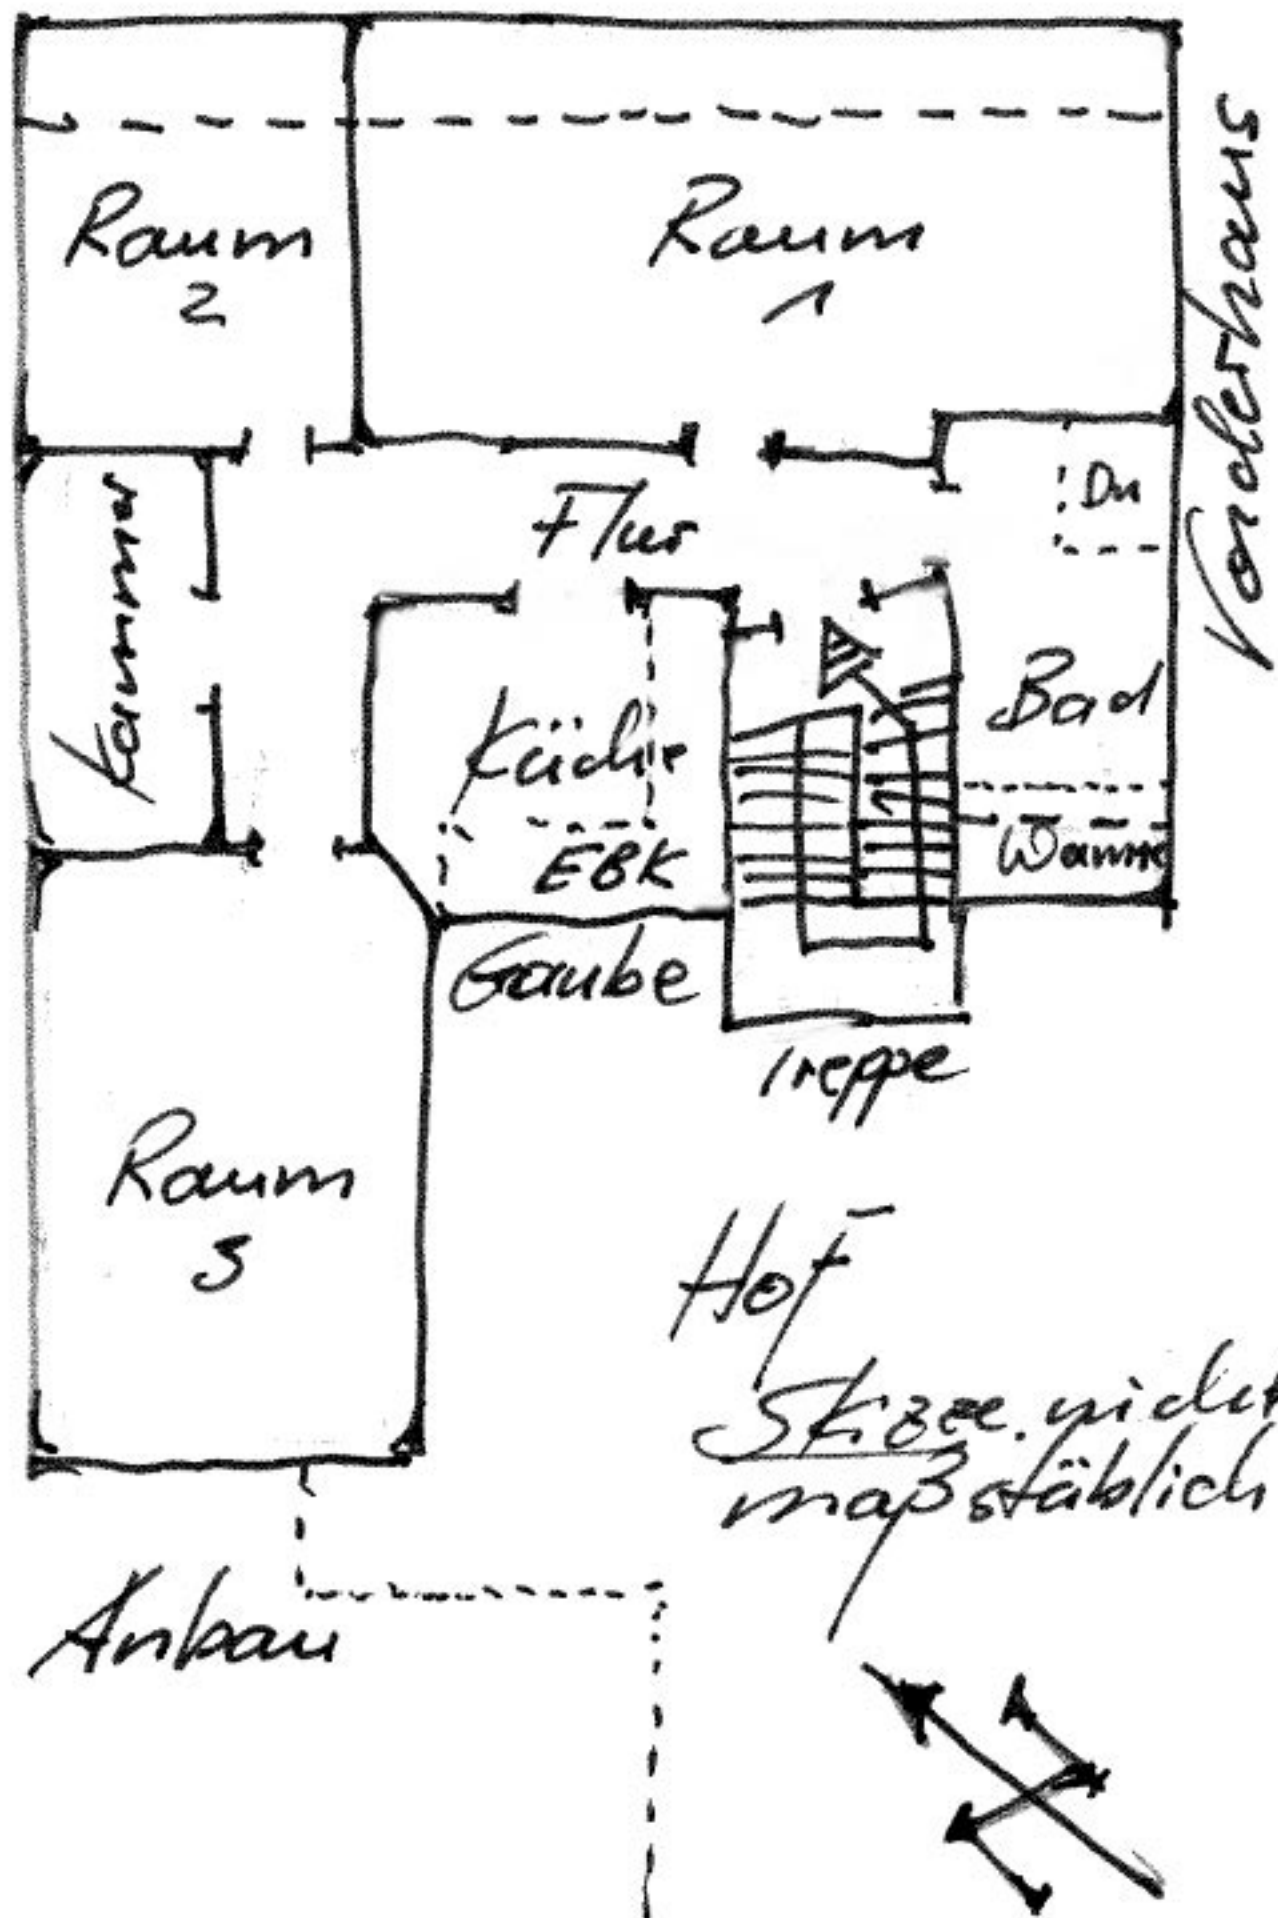 Raum
2
Raum
1
Vorderhaus
Kammer
Flur
Du
Küche
Bad
EBK
Wanne
Gaube
Treppe
Raum
3
Hof
Skizze nicht
maßstäblich
Anbau
N